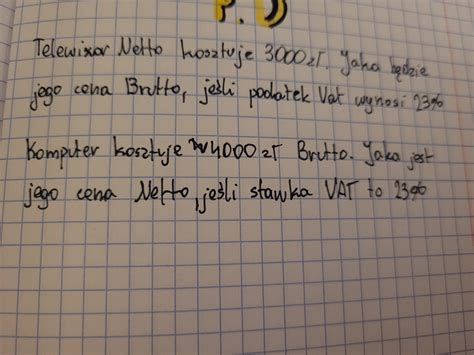 P. D
Telewizor Netto kosztuje 3000zł. Jaka będzie
jego cena Brutto, jeśli podatek Vat wynosi 23%
Komputer kosztuje 4000 zł Brutto. Jaka jest
jego cena Netto, jeśli stawka VAT to 23%